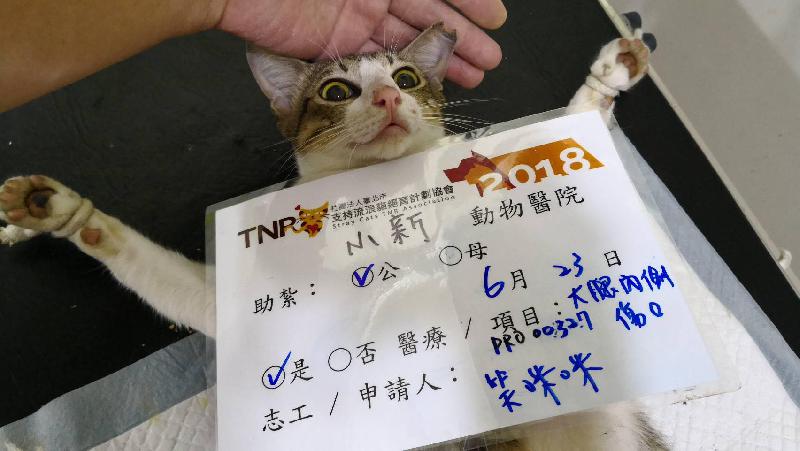 TNR 社團法人臺北市支持流浪貓絕育計劃協會 2018
Stray Cats TNR Association
小新 動物醫院
助紮： ✓公 ○母 6月 23日
✓是 ○否 醫療 / 項目：大腿內側傷口
PRO 00327
志工 / 申請人： 柴咪咪